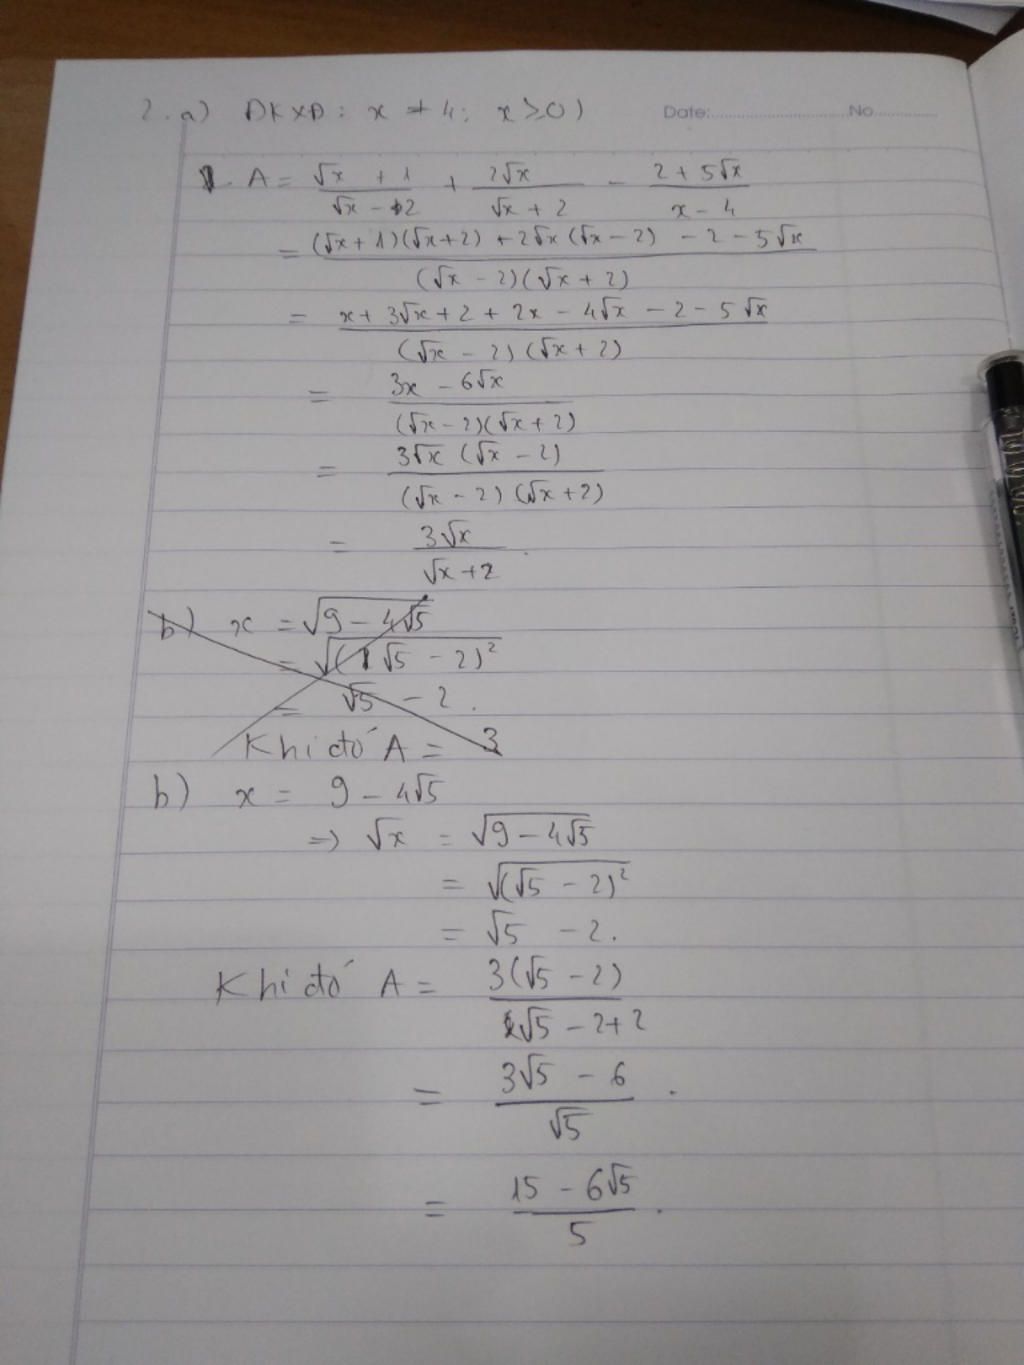 2. a) ĐKXĐ: x ≠ 4; x ≥ 0)
Date:...............No...........
1. A = (√x + 1)/(√x - 2) + 2√x/(√x + 2) - (2 + 5√x)/(x - 4)
= ((√x + 1)(√x + 2) + 2√x(√x - 2) - 2 - 5√x)/((√x - 2)(√x + 2))
= (x + 3√x + 2 + 2x - 4√x - 2 - 5√x)/((√x - 2)(√x + 2))
= (3x - 6√x)/((√x - 2)(√x + 2))
= (3√x (√x - 2))/((√x - 2)(√x + 2))
= 3√x/(√x + 2).
b) x = √(9 - 4√5)
= √((√5 - 2)²)
= √5 - 2.
Khi đó A = 3
b) x = 9 - 4√5
=> √x = √(9 - 4√5)
= √((√5 - 2)²)
= √5 - 2.
Khi đó A = 3(√5 - 2)/(√5 - 2 + 2)
= (3√5 - 6)/√5.
= (15 - 6√5)/5.